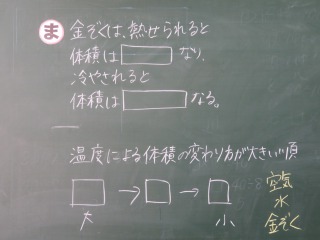 ま 金ぞくは、熱せられると
体積は なり、
冷やされると
体積は なる。
温度による体積の変わり方が大きい順
→ →
大 小
空気
水
金ぞく